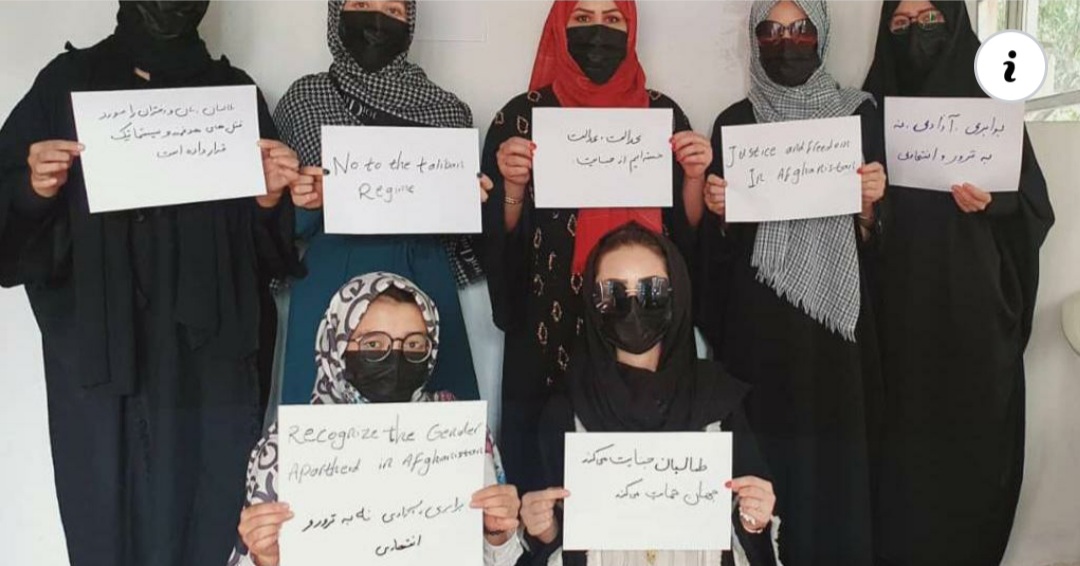 طالبان زنان و دختران را مورد
قتل های هدفمند و سیستماتیک
قرار داده است
No to the taliban
Regime
عدالت، عدالت
خسته‌ایم از جنایت
Justice and freedom
In Afghanistan
برابری، آزادی، نه
به ترور و انتحاری
Recognize the Gender
Apartheid in Afghanistan
برابری، نه به ترور و
انتحاری
طالبان جنایت میکند
جهان حمایت میکند